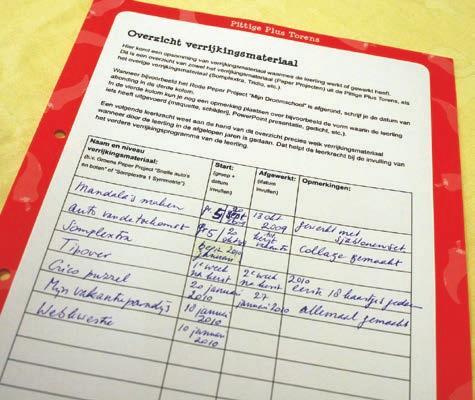 Pittige Plus Torens
Overzicht verrijkingsmateriaal
Hier komt een opsomming van verrijkingsmateriaal waarmee de leerling werkt of gewerkt heeft.
Dit is een overzicht van zowel het verrijkingsmateriaal (Peper Projecten) uit de Pittige Plus Torens, als
het overige verrijkingsmateriaal (Somplextra, Taldis, etc.)
Wanneer bijvoorbeeld het Rode Peper Project "Mijn Droomschool" is afgerond, schrijf je de datum van
afronding in de derde kolom.
In de vierde kolom kun je nog een opmerking plaatsen over bijvoorbeeld de vorm waarin de leerling
iets heeft uitgevoerd (maquette, schilderij, PowerPoint presentatie, gedicht, etc.)
Een volgende leerkracht weet aan de hand van dit overzicht precies welk verrijkingsmateriaal
wanneer door de leerling in de afgelopen jaren is gedaan. Dat helpt de leerkracht bij de invulling van
het verdere verrijkingsprogramma van de leerling.
Naam en niveau
verrijkingsmateriaal:
(b.v. Groene Peper Project "Snelle auto's
en boten" of "Somplextra 1 Symmetrie")
Start:
(groep +
datum
invullen)
Afgewerkt:
(datum
invullen)
Opmerkingen:
Mandala's maken
13 okt
2009
gewerkt met
sjablonenset
Auto van de toekomst
5
collage gemaakt
Somplextra
2010
januari
Tipover
1e week
na kerst
2e week
na kerst
2010
eerste 18 kaartjes gedaan
Crico puzzel
20 januari
2010
27
januari 2010
allemaal gemaakt
Mijn vakantieparadijs
18 januari
2010
Webkwestie
10 januari
2010